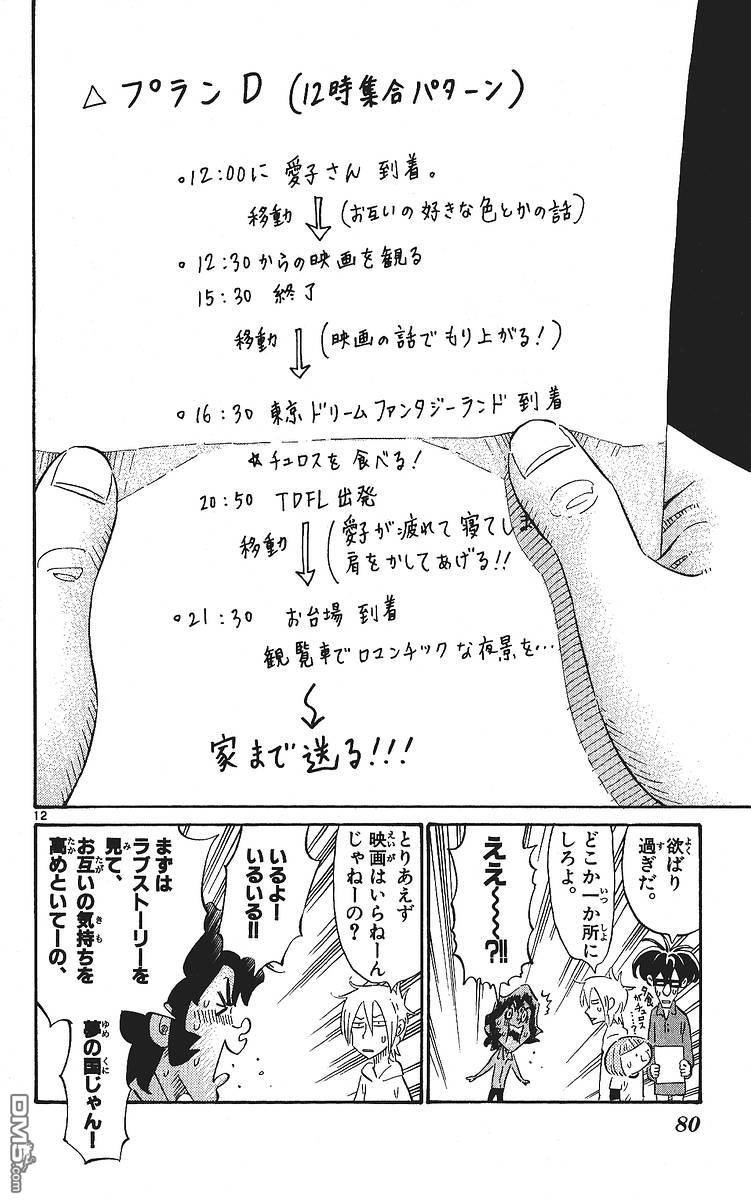 △ プランD(12時集合パターン)
○12:00に 愛子さん 到着。
移動 ⇓ (お互いの好きな色とかの話)
○12:30からの映画を観る
15:30 終了
移動 ⇓ (映画の話でもり上がる!)
○16:30 東京ドリームファンタジーランド 到着
☆チュロスを食べる!
20:50 TDFL出発
移動 ⇓ (愛子が疲れて寝てしま
肩をかしてあげる!!
○21:30 お台場 到着
観覧車でロマンチックな夜景を…
家まで送る!!!
12
欲ばり
過ぎだ。
どこか一か所に
しろよ。
ええ~~~~?!!
夕食
がチュロス
…?
とりあえず
映画はいらねーん
じゃねーの?
いるよー
いるいる!!
まずは
ラブストーリーを
見て、
お互いの気持ちを
高めといてーの、
夢の国じゃんー!
80